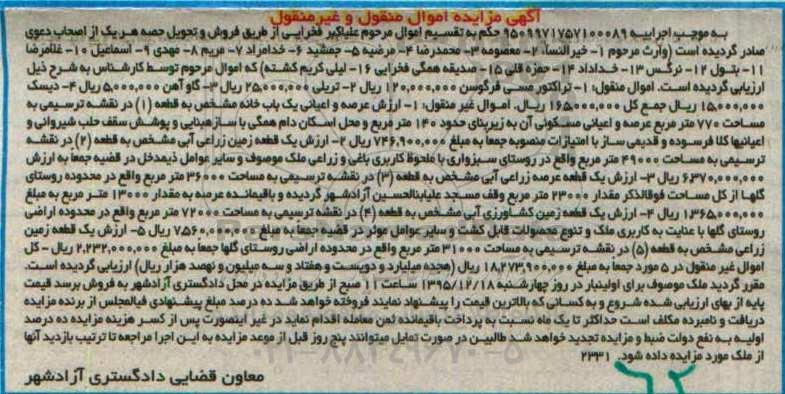 آگهی مزایده اموال منقول و غیرمنقول
به موجب اجراییه ۹۵۰۹۹۷۱۷۵۷۱۰۰۰۸۹ حکم به تقسیم اموال مرحوم علی‌اکبر فخرایی از طریق فروش و تحویل حصه هر یک از اصحاب دعوی
صادر گردیده است (وارث مرحوم ۱- خیرالنسا، ۲- معصومه ۳- محمدرضا ۴- مرضیه ۵- جمشید ۶- خدامراد ۷- مریم ۸- مهدی ۹- اسماعیل ۱۰- غلامرضا
۱۱- بتول ۱۲- نرگس ۱۳- خداداد ۱۴- حمزه قلی ۱۵- صدیقه همگی فخرایی ۱۶- لیلی کریم کشته) که اموال مرحوم توسط کارشناس به شرح ذیل
ارزیابی گردیده است. اموال منقول: ۱- تراکتور مسی فرگوسن ۱۲۰,۰۰۰,۰۰۰ ریال ۲- تریلی ۲۵,۰۰۰,۰۰۰ ریال ۳- گاوآهن ۵,۰۰۰,۰۰۰ ریال ۴- دیسک
۱۵,۰۰۰,۰۰۰ ریال جمع کل ۱۶۵,۰۰۰,۰۰۰ ریال. اموال غیر منقول: ۱- ارزش عرصه و اعیانی یک باب خانه مشخص به قطعه (۱) در نقشه ترسیمی به
مساحت ۷۷۰ متر مربع عرصه و اعیانی مسکونی آن به زیربنای حدود ۱۴۰ متر مربع و محل اسکان دام همگی با سازه بنایی و پوشش سقف حلب شیروانی و
اعیانیها کلا فرسوده و قدیمی ساز با امتیازات منصوبه جمعا به مبلغ ۷۴۶,۹۰۰,۰۰۰ ریال ۲- ارزش یک قطعه زمین زراعی آبی مشخص به قطعه (۲) در نقشه
ترسیمی به مساحت ۴۹۰۰۰ متر مربع واقع در روستای سبزواری با ملحوظ کاربری باغی و زراعی ملک موصوف و سایر عوامل ذیمدخل در قضیه جمعا به ارزش
۶,۳۷۰,۰۰۰,۰۰۰ ریال ۳- ارزش یک قطعه عرصه زراعی آبی مشخص به قطعه (۳) در نقشه ترسیمی به مساحت ۳۶۰۰۰ متر مربع واقع در محدوده روستای
گلها از کل مساحت فوق‌الذکر مقدار ۲۳۰۰۰ متر مربع وقف مسجد علی‌ابن‌الحسین آزادشهر گردیده و باقیمانده عرصه به مقدار ۱۳۰۰۰ متر مربع به مبلغ
۱,۳۶۵,۰۰۰,۰۰۰ ریال ۴- ارزش یک قطعه زمین کشاورزی آبی مشخص به قطعه (۴) در نقشه ترسیمی به مساحت ۷۲۰۰۰ متر مربع واقع در محدوده اراضی
روستای گلها با عنایت به کاربری ملک و تنوع محصولات قابل کشت و سایر عوامل موثر در قضیه جمعا به مبلغ ۷,۵۶۰,۰۰۰,۰۰۰ ریال ۵- ارزش یک قطعه زمین
زراعی مشخص به قطعه (۵) در نقشه ترسیمی به مساحت ۳۱۰۰۰ متر مربع واقع در محدوده اراضی روستای گلها جمعا به مبلغ ۲,۲۳۲,۰۰۰,۰۰۰ ریال - کل
اموال غیر منقول در ۵ مورد جمعا به مبلغ ۱۸,۲۷۳,۹۰۰,۰۰۰ ریال (هجده میلیارد و دویست و هفتاد و سه میلیون و نهصد هزار ریال) ارزیابی گردیده است.
مقرر گردید ملک موصوف برای اولین‌بار در روز چهارشنبه ۱۳۹۵/۱۲/۱۸ ساعت ۱۱ صبح از طریق مزایده در محل دادگستری آزادشهر به فروش برسد قیمت
پایه از بهای ارزیابی شده شروع و به کسانی که بالاترین قیمت را پیشنهاد نمایند فروخته خواهد شد ده درصد مبلغ پیشنهادی فی‌المجلس از برنده مزایده
دریافت و نامبرده مکلف است حداکثر تا یک ماه نسبت به پرداخت باقیمانده ثمن معامله اقدام نماید در غیر اینصورت پس از کسر هزینه مزایده ده درصد
اولیه به نفع دولت ضبط و مزایده تجدید خواهد شد طالبین در صورت تمایل میتوانند پنج روز قبل از موعد مزایده به این اجرا مراجعه تا ترتیب بازدید آنها
از ملک مورد مزایده داده شود. ۲۳۳۱
معاون قضایی دادگستری آزادشهر
۰۲۱-۸۸۳۴۹۶۷۰-۵
۶۲